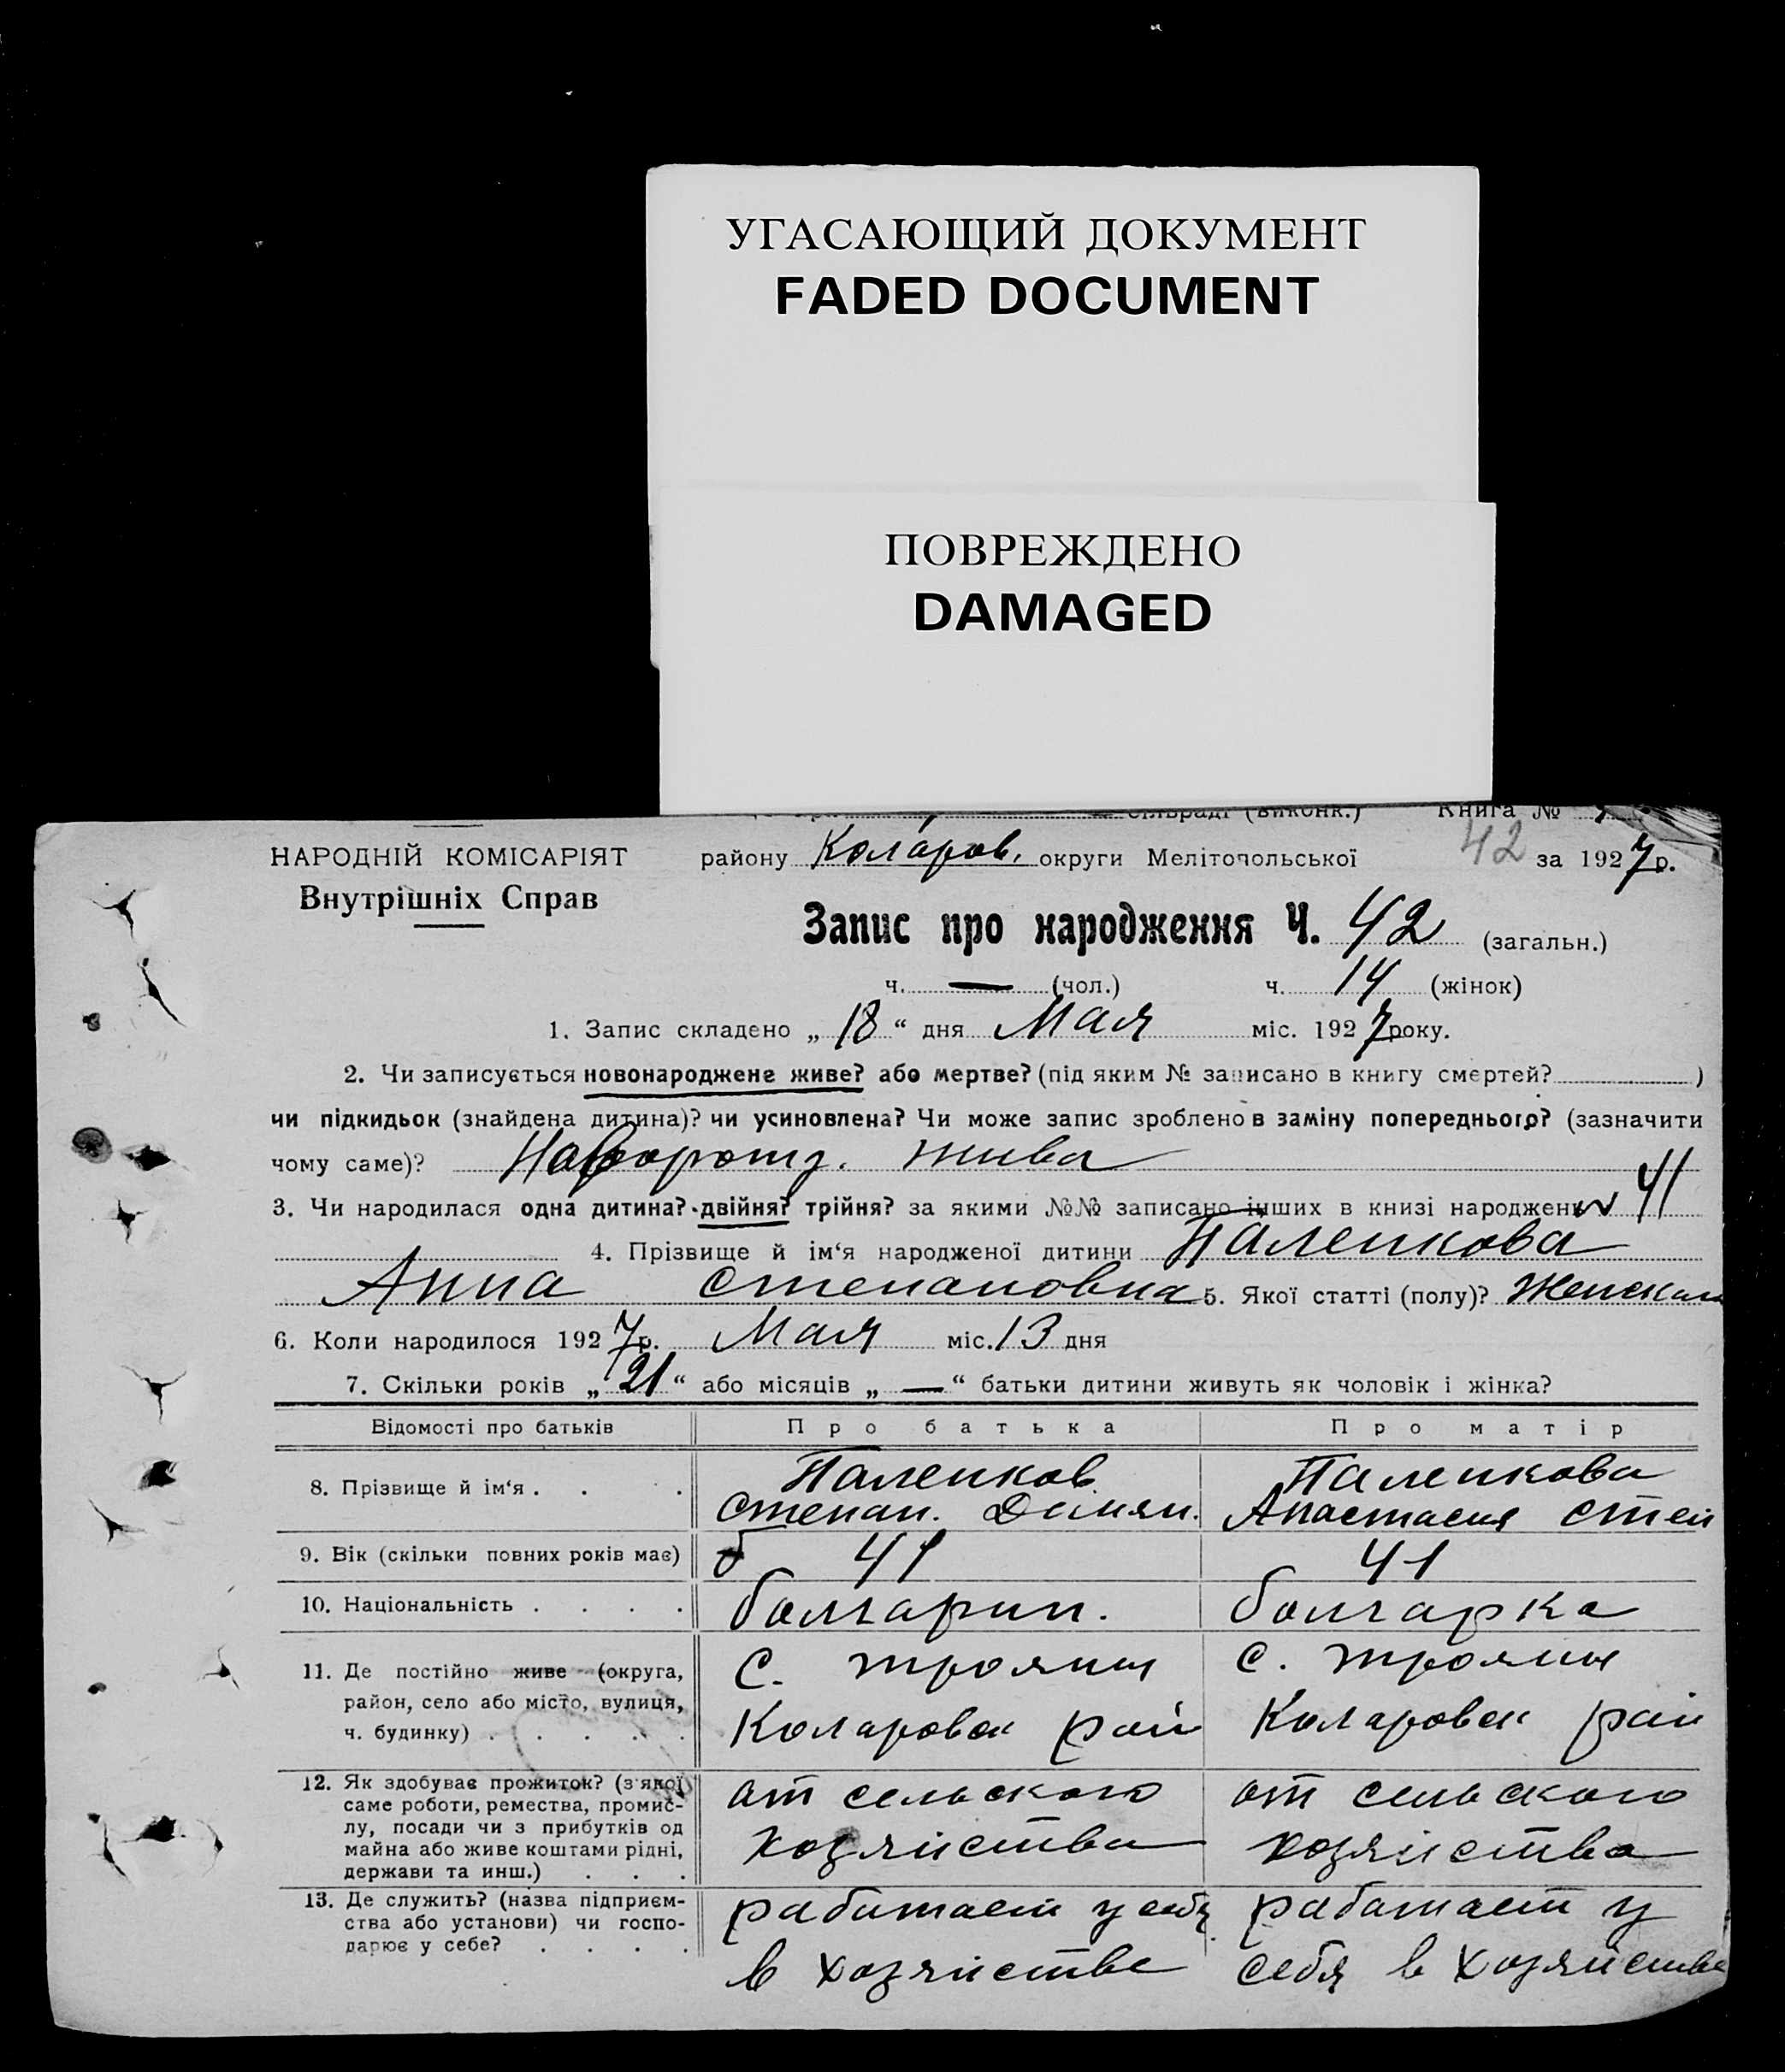 УГАСАЮЩИЙ ДОКУМЕНТ
FADED DOCUMENT
ПОВРЕЖДЕНО
DAMAGED
сільраді (виконк.) Книга №
НАРОДНІЙ КОМІСАРІЯТ
Внутрішніх Справ
району Коларов. округи Мелітопольської 42 за 1927 р.
Запис про народження Ч. 42 (загальн.)
ч. — (чол.) ч. 14 (жінок)
1. Запис складено „ 18 “ дня Мая міс. 1927 року.
2. Чи записується новонароджене живе? або мертве? (під яким № записано в книгу смертей? )
чи підкидьок (знайдена дитина)? чи усиновлена? Чи може запис зроблено в заміну попереднього? (зазначити
чому саме)? жива
3. Чи народилася одна дитина? двійня? трійня? за якими №№ записано інших в книзі народжень 41
4. Прізвище й ім‘я народженої дитини Паленкова
Анна Степановна 5. Якої статті (полу)? Женская
6. Коли народилося 1927 р. Мая міс. 13 дня
7. Скільки років „ 21 “ або місяців „ — “ батьки дитини живуть як чоловік і жінка?
Відомості про батьків Про батька Про матір
8. Прізвище й ім‘я . . . Паленков Паленкова
Степан. Димян. Анастасия Степ
9. Вік (скільки повних років має) 41 41
10. Національність . . . . болгарин. болгарка
11. Де постійно живе (округа, район, село або місто, вулиця, ч. будинку) . . . . .
с. Трояны с. Трояны
Коларовск рай Коларовск рай
12. Як здобуває прожиток? (з якої саме роботи, ремества, промислу, посади чи з прибутків од майна або живе коштами рідні, держави та инш.) . . .
от сельского от сельского
хозяйства хозяйства
13. Де служить? (назва підприємства або установи) чи господарює у себе? . . . .
работает у себя работает у
в хозяйстве себя в хозяйстве